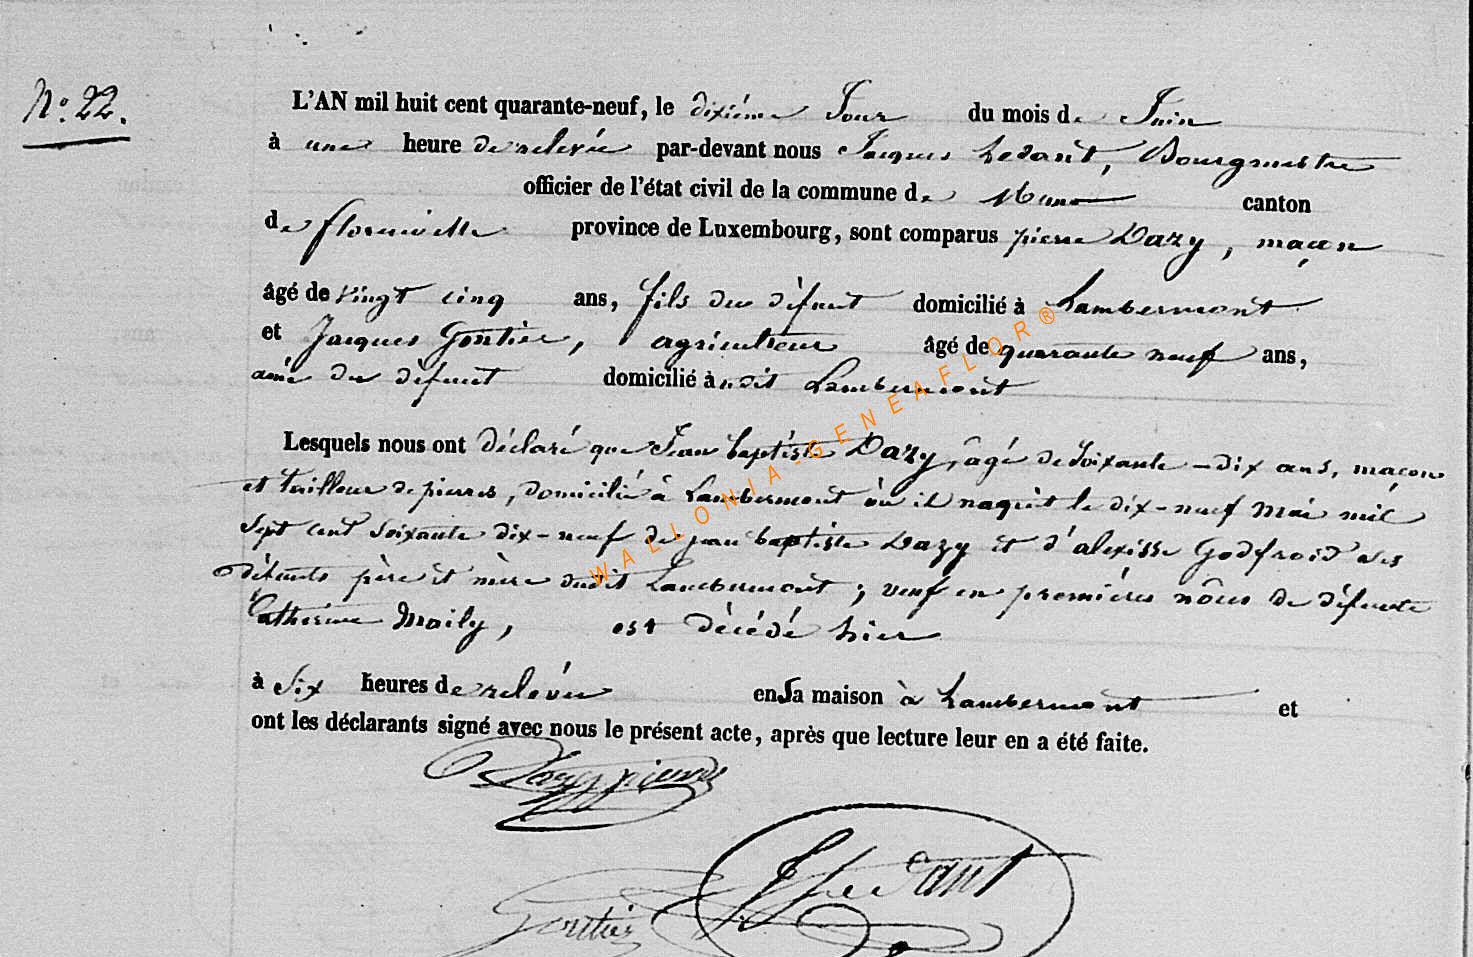 N.° 22.
L'AN mil huit cent quarante-neuf, le dixième Jour du mois de Juin
à une heure de relevée par-devant nous Jacques Ledant, Bourgmestre
officier de l'état civil de la commune de Muno canton
de florenville province de Luxembourg, sont comparus pierre Dazy, maçon
âgé de vingt cinq ans, fils du défunt domicilié à Lambermont
et Jacques Gontier, agriculteur âgé de quarante neuf ans,
ami du défunt domicilié àudit Lambermont
Lesquels nous ont déclaré que Jean baptiste Dazy, âgé de Soixante-dix ans, maçon
et tailleur de pierres, domicilié à Lambermont où il naquit le dix-neuf Mai mil
Sept cent Soixante dix-neuf de jean baptiste Dazy et d'alexisse Godfroid des
défunts père et mère dudit Lambermont ; veuf en premières nôces de défunte
Catherine Maily, est décédé hier
à Six heures de relevée en Sa maison à Lambermont et
ont les déclarants signé avec nous le présent acte, après que lecture leur en a été faite.
Dazy pierre
JLedant
Gontier
WALLONIA-GENEAFLOR®